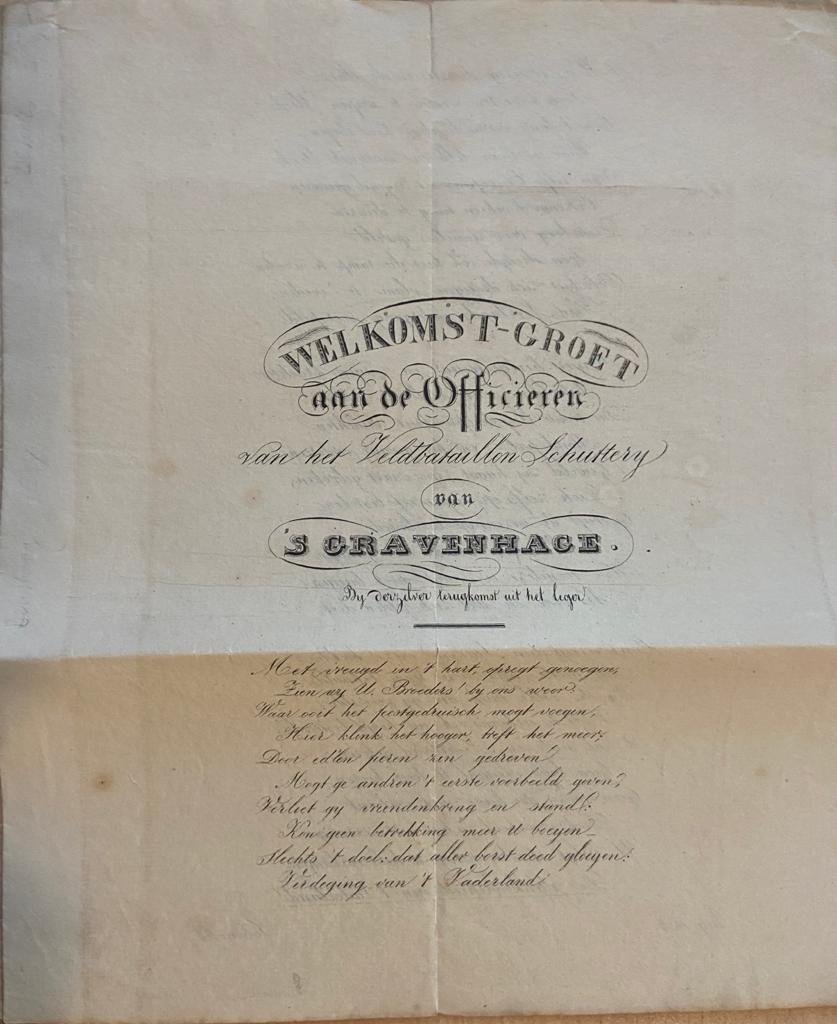 WELKOMST-GROET
aan de Officieren
van het Veldbataillon Schuttery
van
'S GRAVENHAGE.
By derzelver terugkomst uit het leger
Met vreugd in 't hart, opregt genoegen,
Zien wy U, Broeders! by ons weer.
Waar ooit het feestgedruisch mogt voegen,
Hier klink' het hooger, treft het meer;
Door ed'len fieren zin gedreven!
Mogt ge andren 't eerste voorbeeld geven;
Verliet gy vriendenkring en stand:
Kon geen betrekking meer U boeyen_
Slechts 't doel: dat aller borst deed gloeyen:
Verdeging van 't Vaderland!